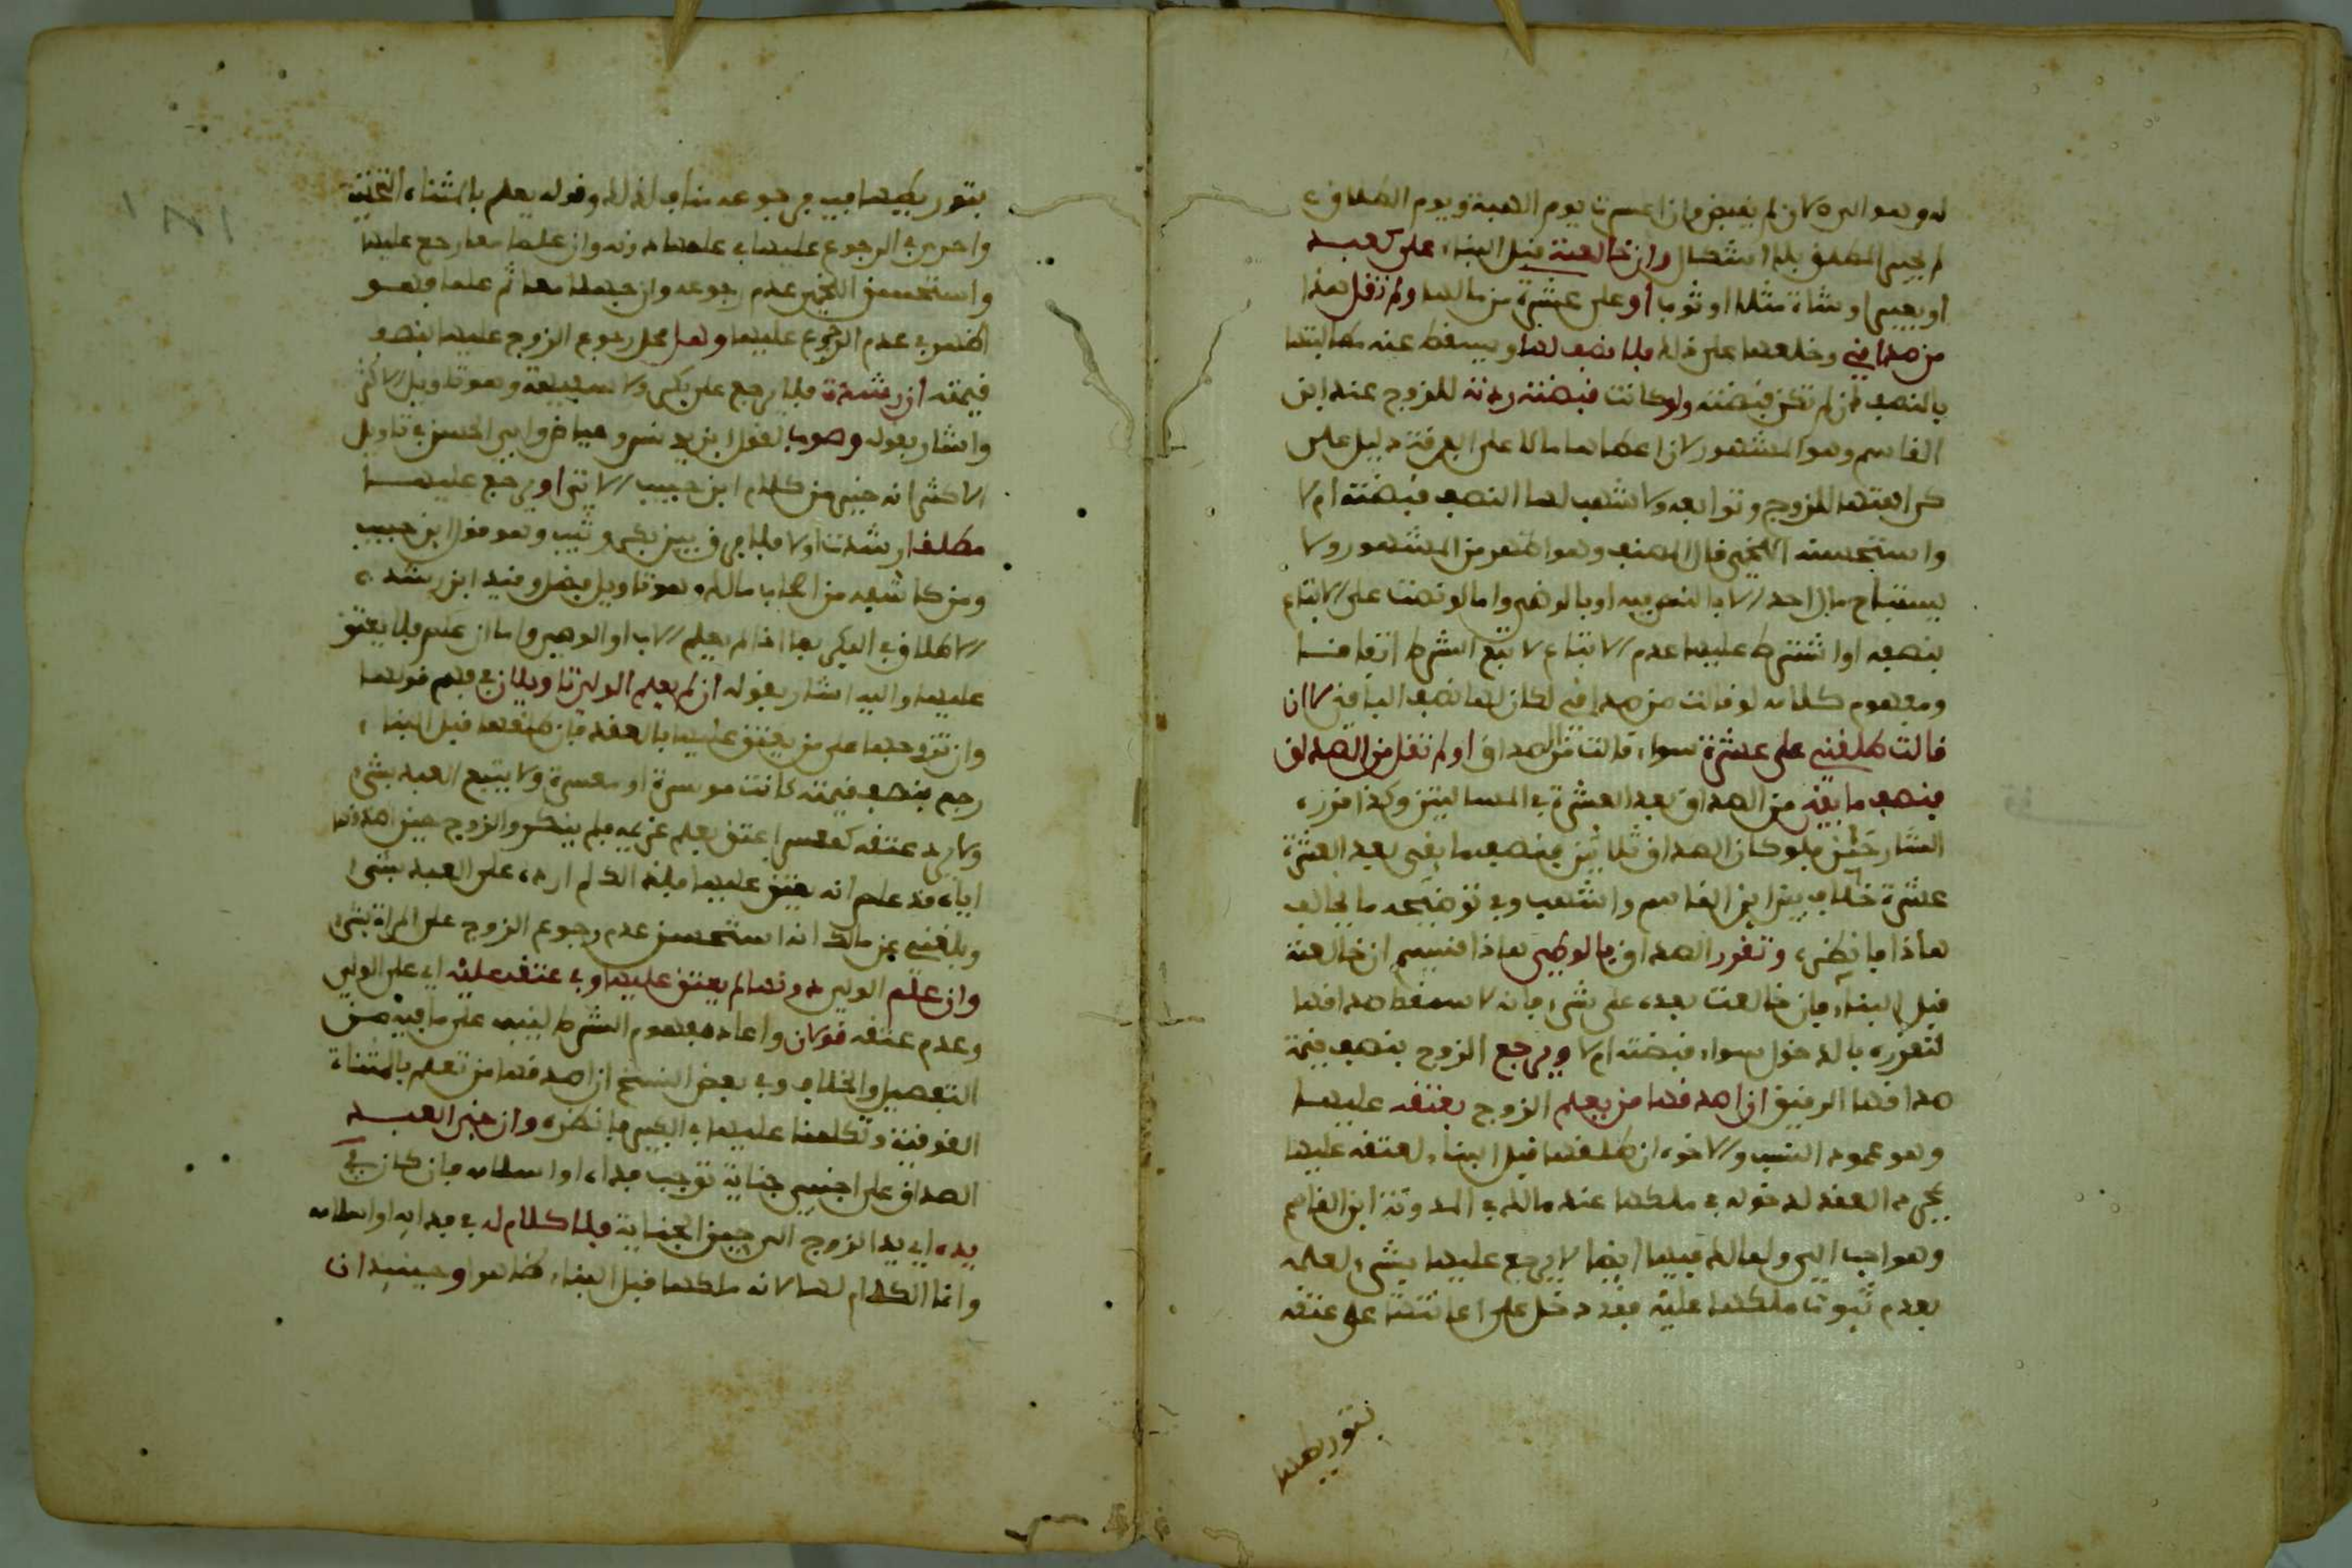 له وهو الدين كان لم يقبض وان اعسرت يوم الهبة ويوم الطلاق
لم يجبر المطلق بلا اشكال وان خالعته قبل البناء على كعبد
او بعير او شاة مثلا او ثوب او على عشرة من مالها ولم تقل هذا
من صداقي وخلعها على ذلك فلا نصف لها ويسقط عنه مطالبتها
بالنصف ان لم تكن قبضته ولو كانت قبضته ردته للزوج عند ابن
القاسم وهو المشهور لان اعطاءها مالا على الفرقة دليل على
كراهتها للزوج وتوابعه ولاشهب لها النصف قبضته ام لا
واستحسنه اللخمي قال المصنف وهو اظهر من المشهور ولا
يستباح مال احد الا بالنص فيه او بالوضي واما لو نصت على الاتباع
بنصفه او اشترط عليها عدم الاتباع لاتبع الشرط اتفاقا
ومفهوم كلامه لو قالت من صداقي لكان لها نصف الباقي لا ان
قالت طلقني على عشرة سواء قالت من الصداق او لم تقل من الصداق
فنصف ما بقي من الصداق بعد العشرة في المسالتين وكذا قرره
الشارحين فلو كان الصداق ثلاثين فنصف ما بقي بعد العشرة
عشرة خلاف بين ابن القاسم واشهب وفي توضيحه ما يخالف
هاذا فانظره وتقرر الصداق بالوطء هاذا قسيم ان خالعته
قبل البناء فان خالعت بعده على شيء فانه لا يسقط صداقها
لتقرره بالدخول سواء قبضته ام لا ويرجع الزوج بنصف قيمة
صداقها الرقيق ان اصدقها من يعلم الزوج بعتقه عليها
وهو عمود النسب والاخوه ان طلقها قبل البناء لعتقه عليها
بمجرد العقد لدخوله في ملكها عند مالك في المدونة ابن القاسم
وهو احب الي ولمالك فيها ايضا لا يرجع عليها بشيء لعلمه
بعدم ثبوت ملكها عليه فقد دخل على اعانتها على عتقه
بتوريطها
بتوريطها فيرجوعه مناف لذلك وقوله يعلم بالمثناة التحتية
واحرى في الرجوع عليها في علمها دونه وان علما معا رجع عليها
واستحسن اللخمي عدم رجوعه وان جهلا معا ثم علما فهو
اظهر في عدم الرجوع عليها وهل محل رجوع الزوج عليها بنصف
قيمته ان رشدت فلا يرجع على بكر ولا سفيهة وهو تاويل الاكثر
واشار بقوله وصوب لقول ابن يونس وعياض وابي الحسن في تاويل
الاكثر انه جيد من كلام ابن حبيب الاتي او يرجع عليها
مطلقا رشدت او لا فلا فرق بين بكر وثيب وهو قول ابن حبيب
ومن كاشفه من اصحاب مالك وهو تاويل فضل وقيد ابن رشد
الاطلاق في البكر بما اذا لم يعلم الاب او الوصي واما ان علم فلا يعتق
عليها واليه اشار بقوله ان لم يعلم الولي تاويلان في فهم قولها
وان تزوجها على من يعتق عليها بالعقد فان طلقها قبل البناء
رجع بنصف قيمته كانت موسرة او معسرة ولا يتبع العبد بشيء
ولا يرد عتقه كمعسر اعتق بعلم غريمه فلم ينكر والزوج حين اصدقها
اياه قد علم انه يعتق عليها فلذلك لم ارده على العبد بشيء
وبلغني عن مالك انه استحسن عدم رجوع الزوج على المراة بشيء
وان علم الولي دونها لم يعتق عليها وفي عتقه عليه اي على الولي
وعدم عتقه قولان واعاد مفهوم الشرط لينبه على ما فيه من
التفصيل والخلاف وفي بعض النسخ ان اصدقها من تعلم بالمثناة
الفوقية وتكلمنا عليها في الكبير فانظره وان جنى العبد
الصداق على اجنبي جناية توجب فداءه او اسلامه فان كان في
يده اي يد الزوج الى حين الجناية فلا كلام له في فدائه او اسلامه
وانما الكلام لها لانه ملكها قبل البناء كذا هو وحينئذ ان